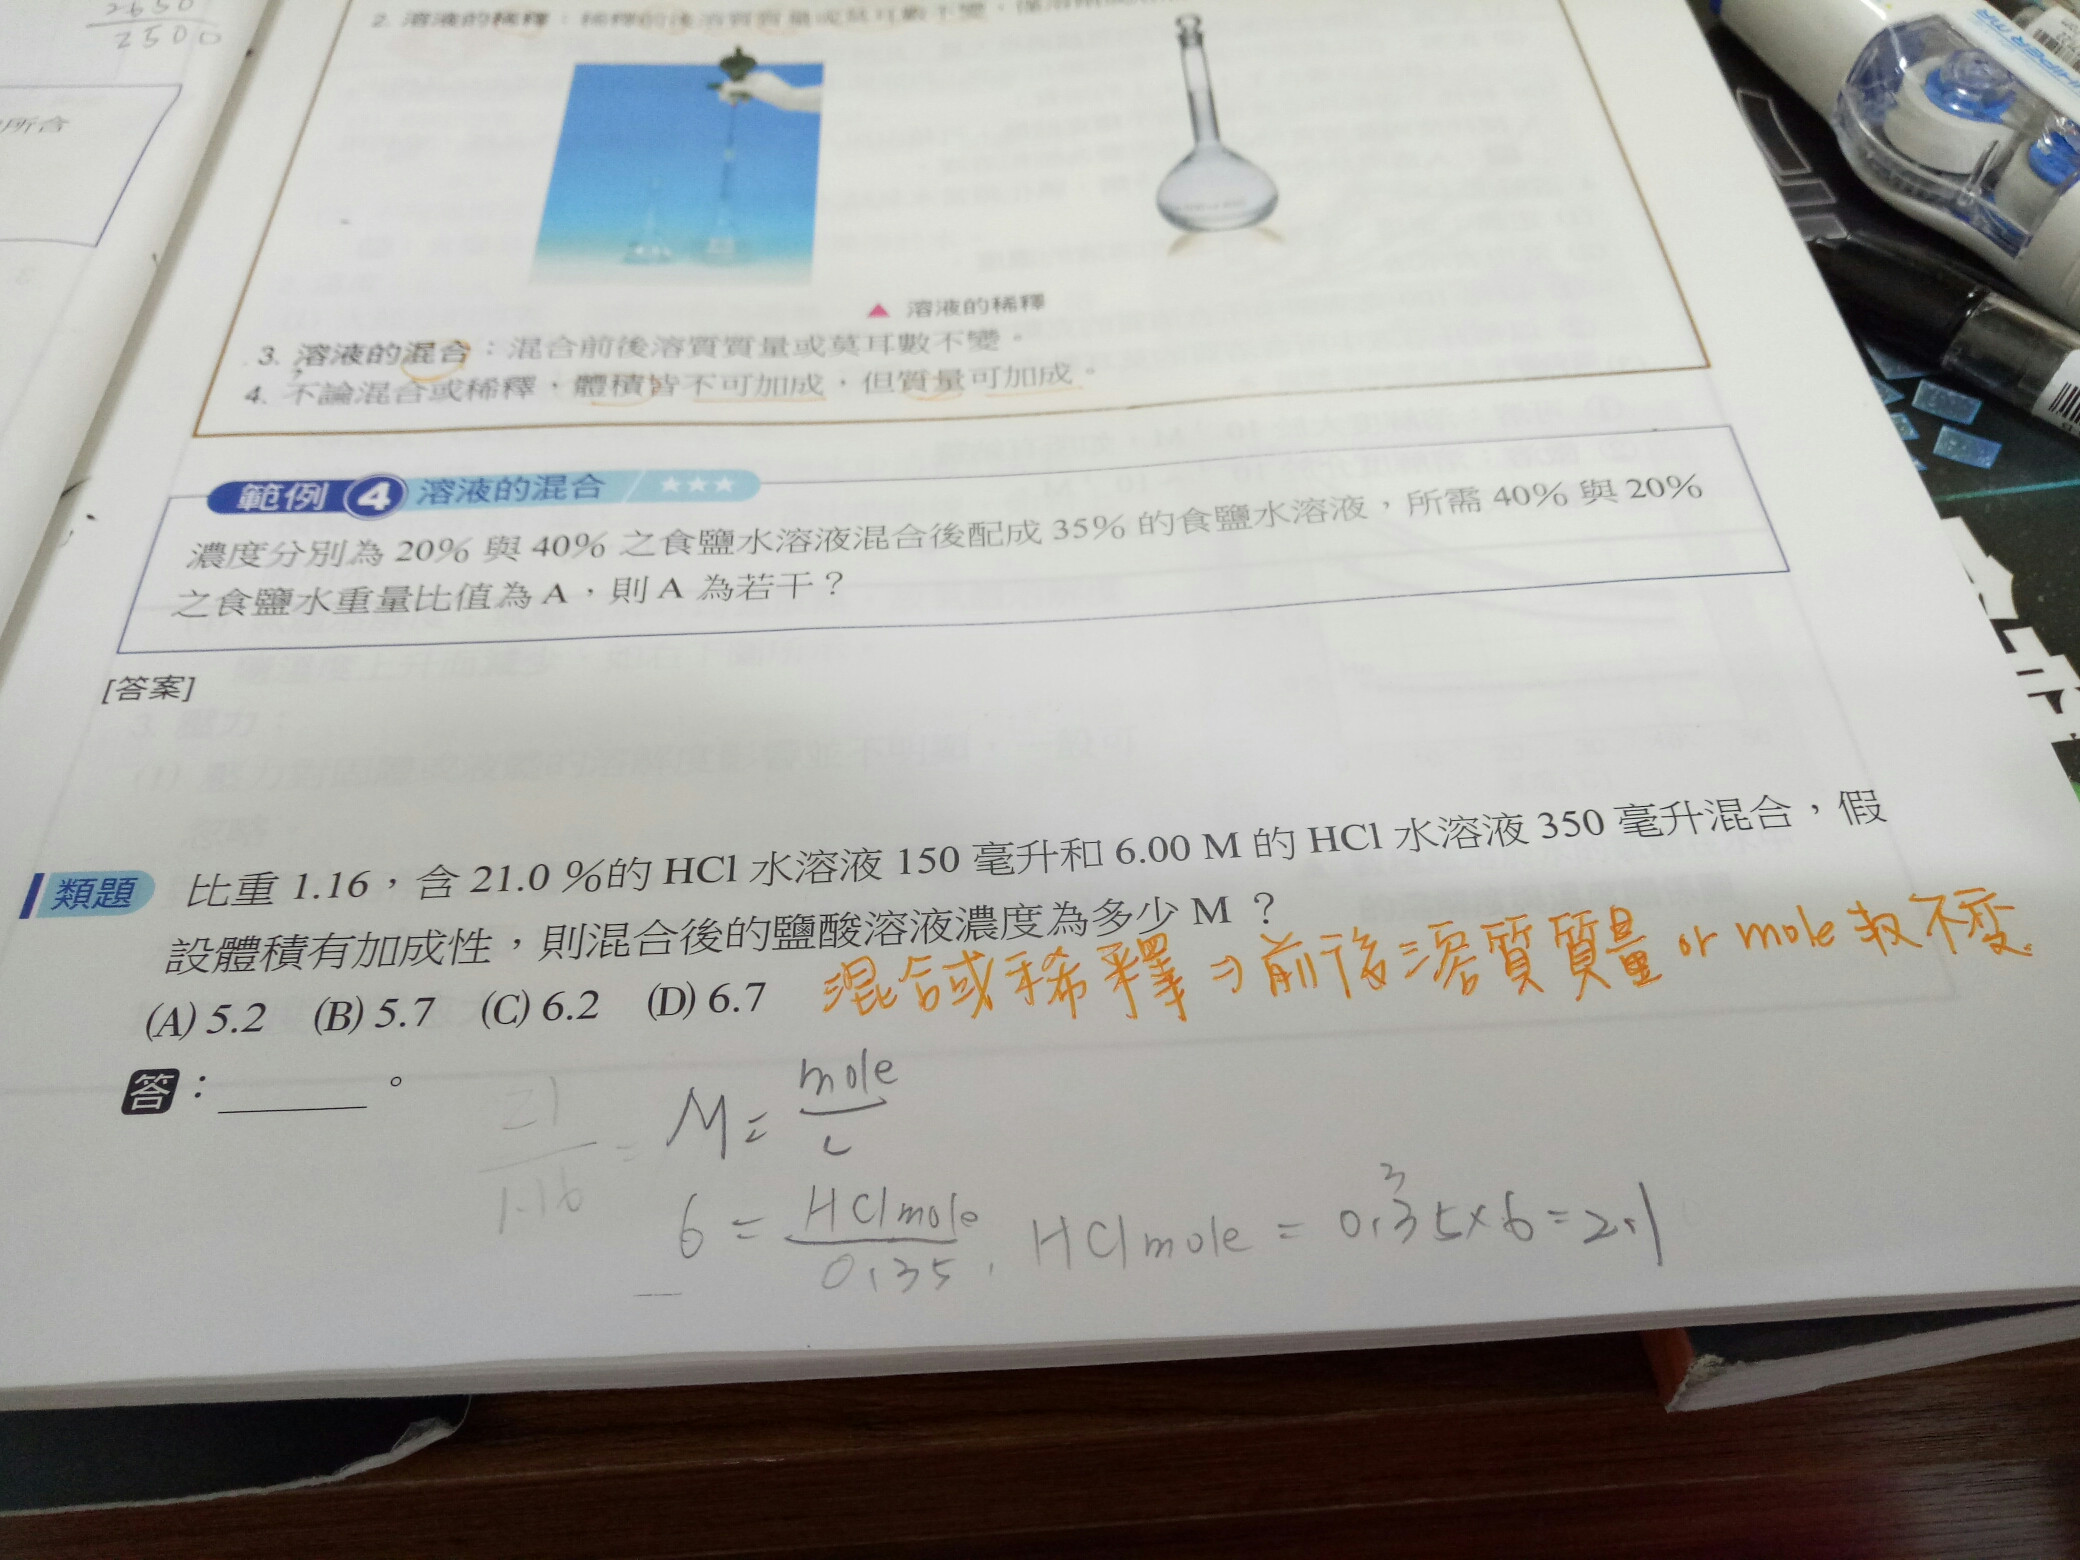 2650
2500
所含
2. 溶液的稀釋：稀釋前後溶質質量或莫耳數不變，
▲ 溶液的稀釋
3. 溶液的混合：混合前後溶質質量或莫耳數不變。
4. 不論混合或稀釋，體積皆不可加成，但質量可加成。
範例 4 溶液的混合 ★★★
濃度分別為 20% 與 40% 之食鹽水溶液混合後配成 35% 的食鹽水溶液，所需 40% 與 20%
之食鹽水重量比值為 A，則 A 為若干？
[答案]
類題 比重 1.16，含 21.0 %的 HCl 水溶液 150 毫升和 6.00 M 的 HCl 水溶液 350 毫升混合，假
設體積有加成性，則混合後的鹽酸溶液濃度為多少 M ？
(A) 5.2 (B) 5.7 (C) 6.2 (D) 6.7
混合或稀釋⇒前後溶質質量 or mole 数不变.
答：______。
21/1.16 =
M = mole/L
6 = HCl mole/0.35, HCl mole = 0.35×6=2.1